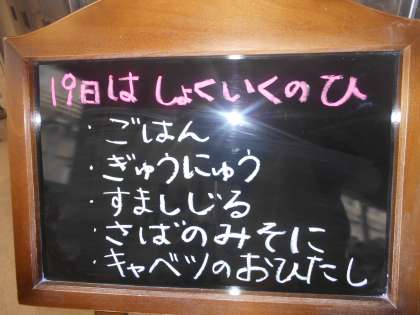 19日は しょくいくのひ
・ごはん
・ぎゅうにゅう
・すましじる
・さばのみそに
・キャベツのおひたし